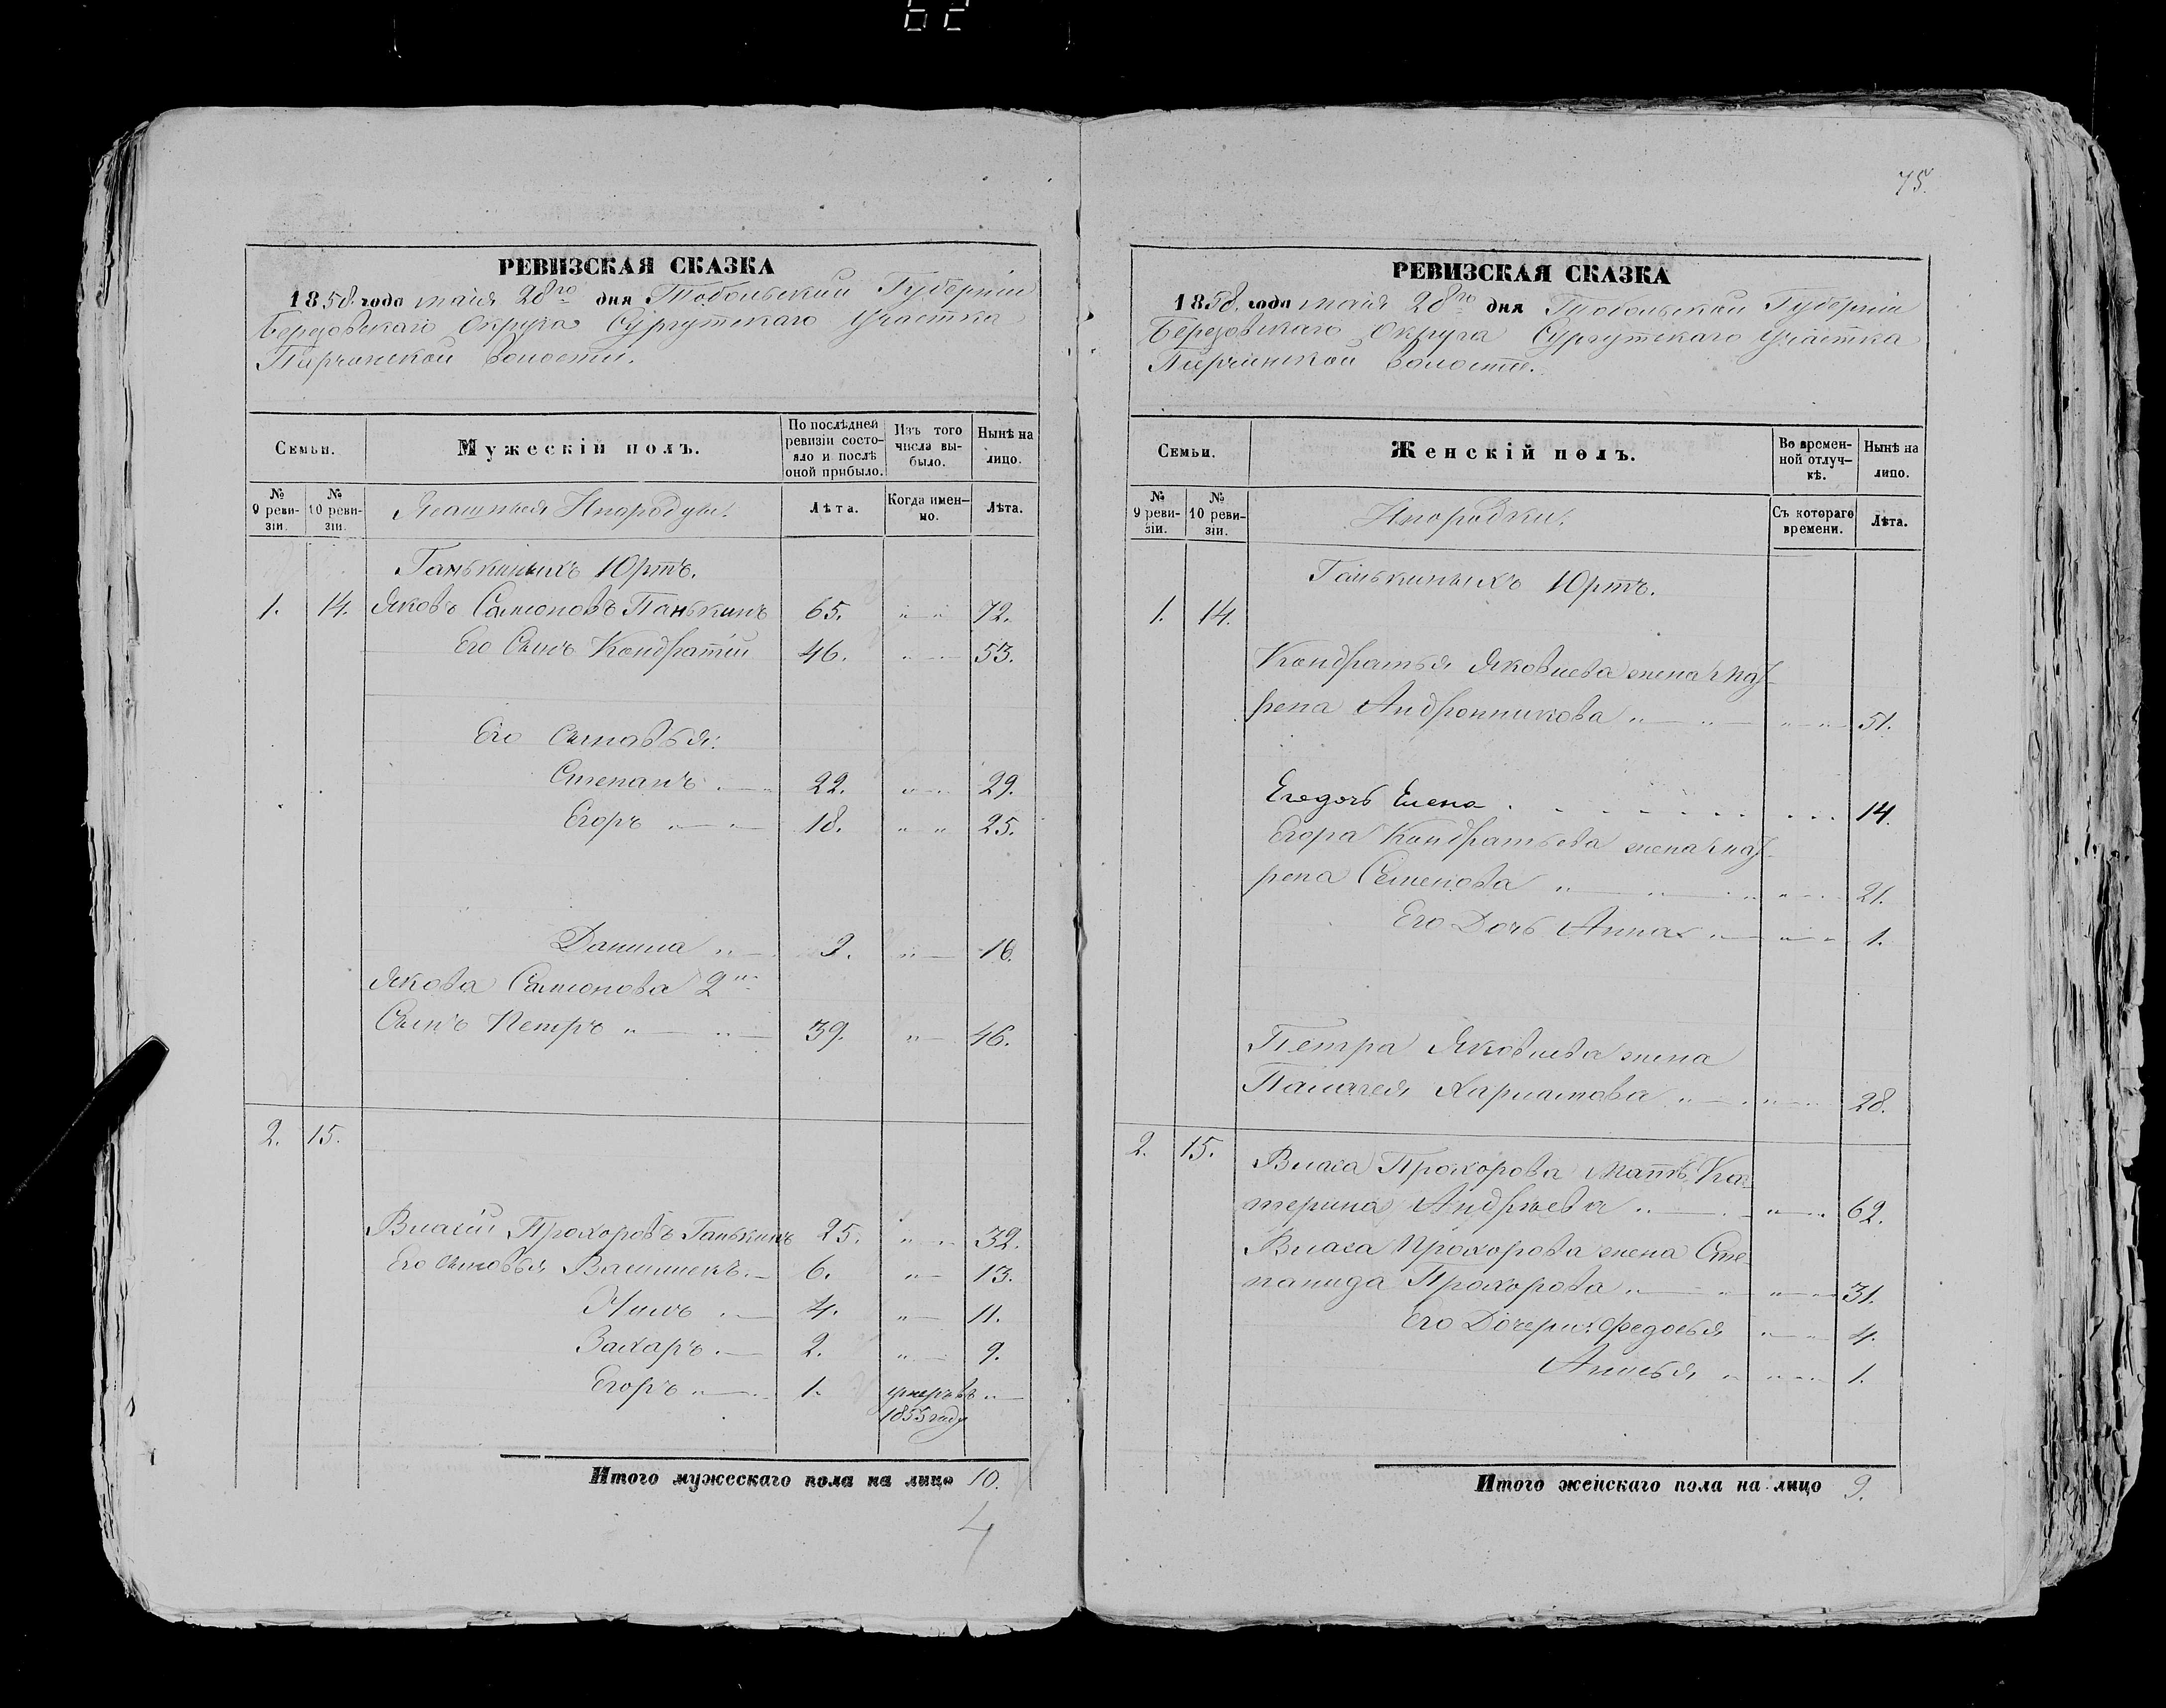 62
РЕВИЗСКАЯ СКАЗКА
1858. года маія 28го дня Тобольской Губерніи
Березовскаго Округа Сургутскаго Участка
Пирчинской волости.
Семьи.
Мужескій полъ.
По послѣдней ревизіи состояло и послѣ оной прибыло.
Изъ того числа выбыло.
Нынѣ на лицо.
№ 9 ревизіи.
№ 10 ревизіи.
Ясашные Инородцы.
Лѣта.
Когда именно.
Лѣта.
Ганькиныхъ Юртъ.
1. 14. Яковъ Самсоновъ Ганькинъ 65. " " 72.
Его Сынъ Кондратій 46. " 53.
Его Сыновья:
Степанъ 22. " 29.
Егоръ " 18. " " 25.
Данила " 9. " 16.
Якова Самсонова 2й
Сынъ Петръ " " 39. " 46.
2. 15.
Власій Прохоровъ Ганькинъ 25. " 32.
Его сыновья 6. " 13.
Нилъ 4. " 11.
Захаръ 2. " 9.
Егоръ " 1. умеръ въ "
1853 году
Итого мужескаго пола на лицо 10.
4
75.
РЕВИЗСКАЯ СКАЗКА
1858. года маія 28го дня Тобольской Губерніи
Березовскаго Округа Сургутскаго Участка
Пирчинской волости.
Семьи.
Женскій полъ.
Во временной отлучкѣ.
Нынѣ на лицо.
№ 9 ревизіи.
№ 10 ревизіи.
Инородки.
Съ котораго времени.
Лѣта.
Ганькиныхъ Юртъ.
1. 14.
Кондратья Яковлева жена Мат-
рена Андронникова " " " " 51.
Его дочь Елена 14.
Егора Кондратьева жена Мат-
рена Семенова " " " 21.
Его Дочь Анна " " 1.
Петра Яковлева жена
Палагея Харлатова " " 28.
2. 15. Власа Прохорова Мать Ка-
терина Андрѣева " " 62.
Власа Прохорова жена Сте-
панида Прохорова " " " 31.
Его Дочери: Федосья " 4.
Анисья " " 1.
Итого женскаго пола на лицо 9.